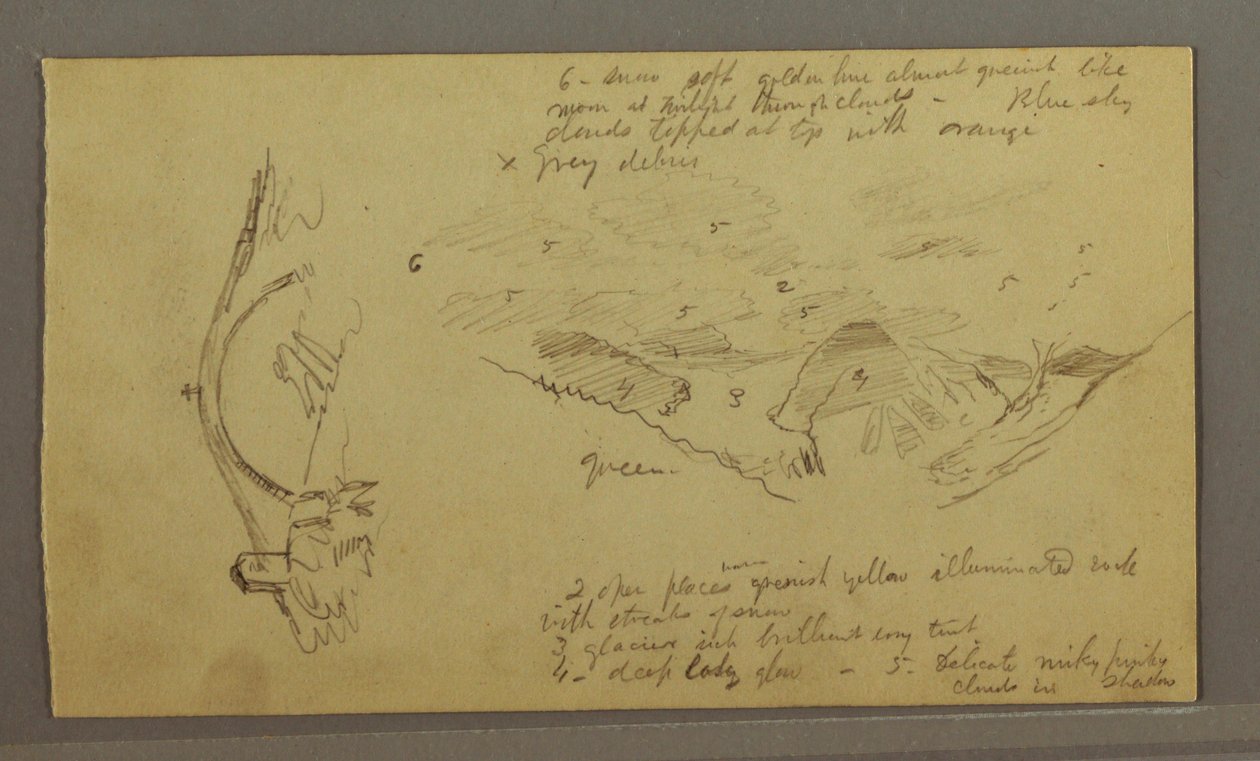 6 - snow soft golden hue almost greenish like
moon at twilight through clouds - Blue sky
clouds topped at top with orange
x Grey debris
5
5
5
5
6
5
5
2
5
5
5
4
4
3
green.
2 open places warm greenish yellow illuminated rock
with streaks of snow
3 glaciers rich brilliant rosy tint
4 - deep rosy glow - 5 - Delicate milky pinky
clouds in shadow